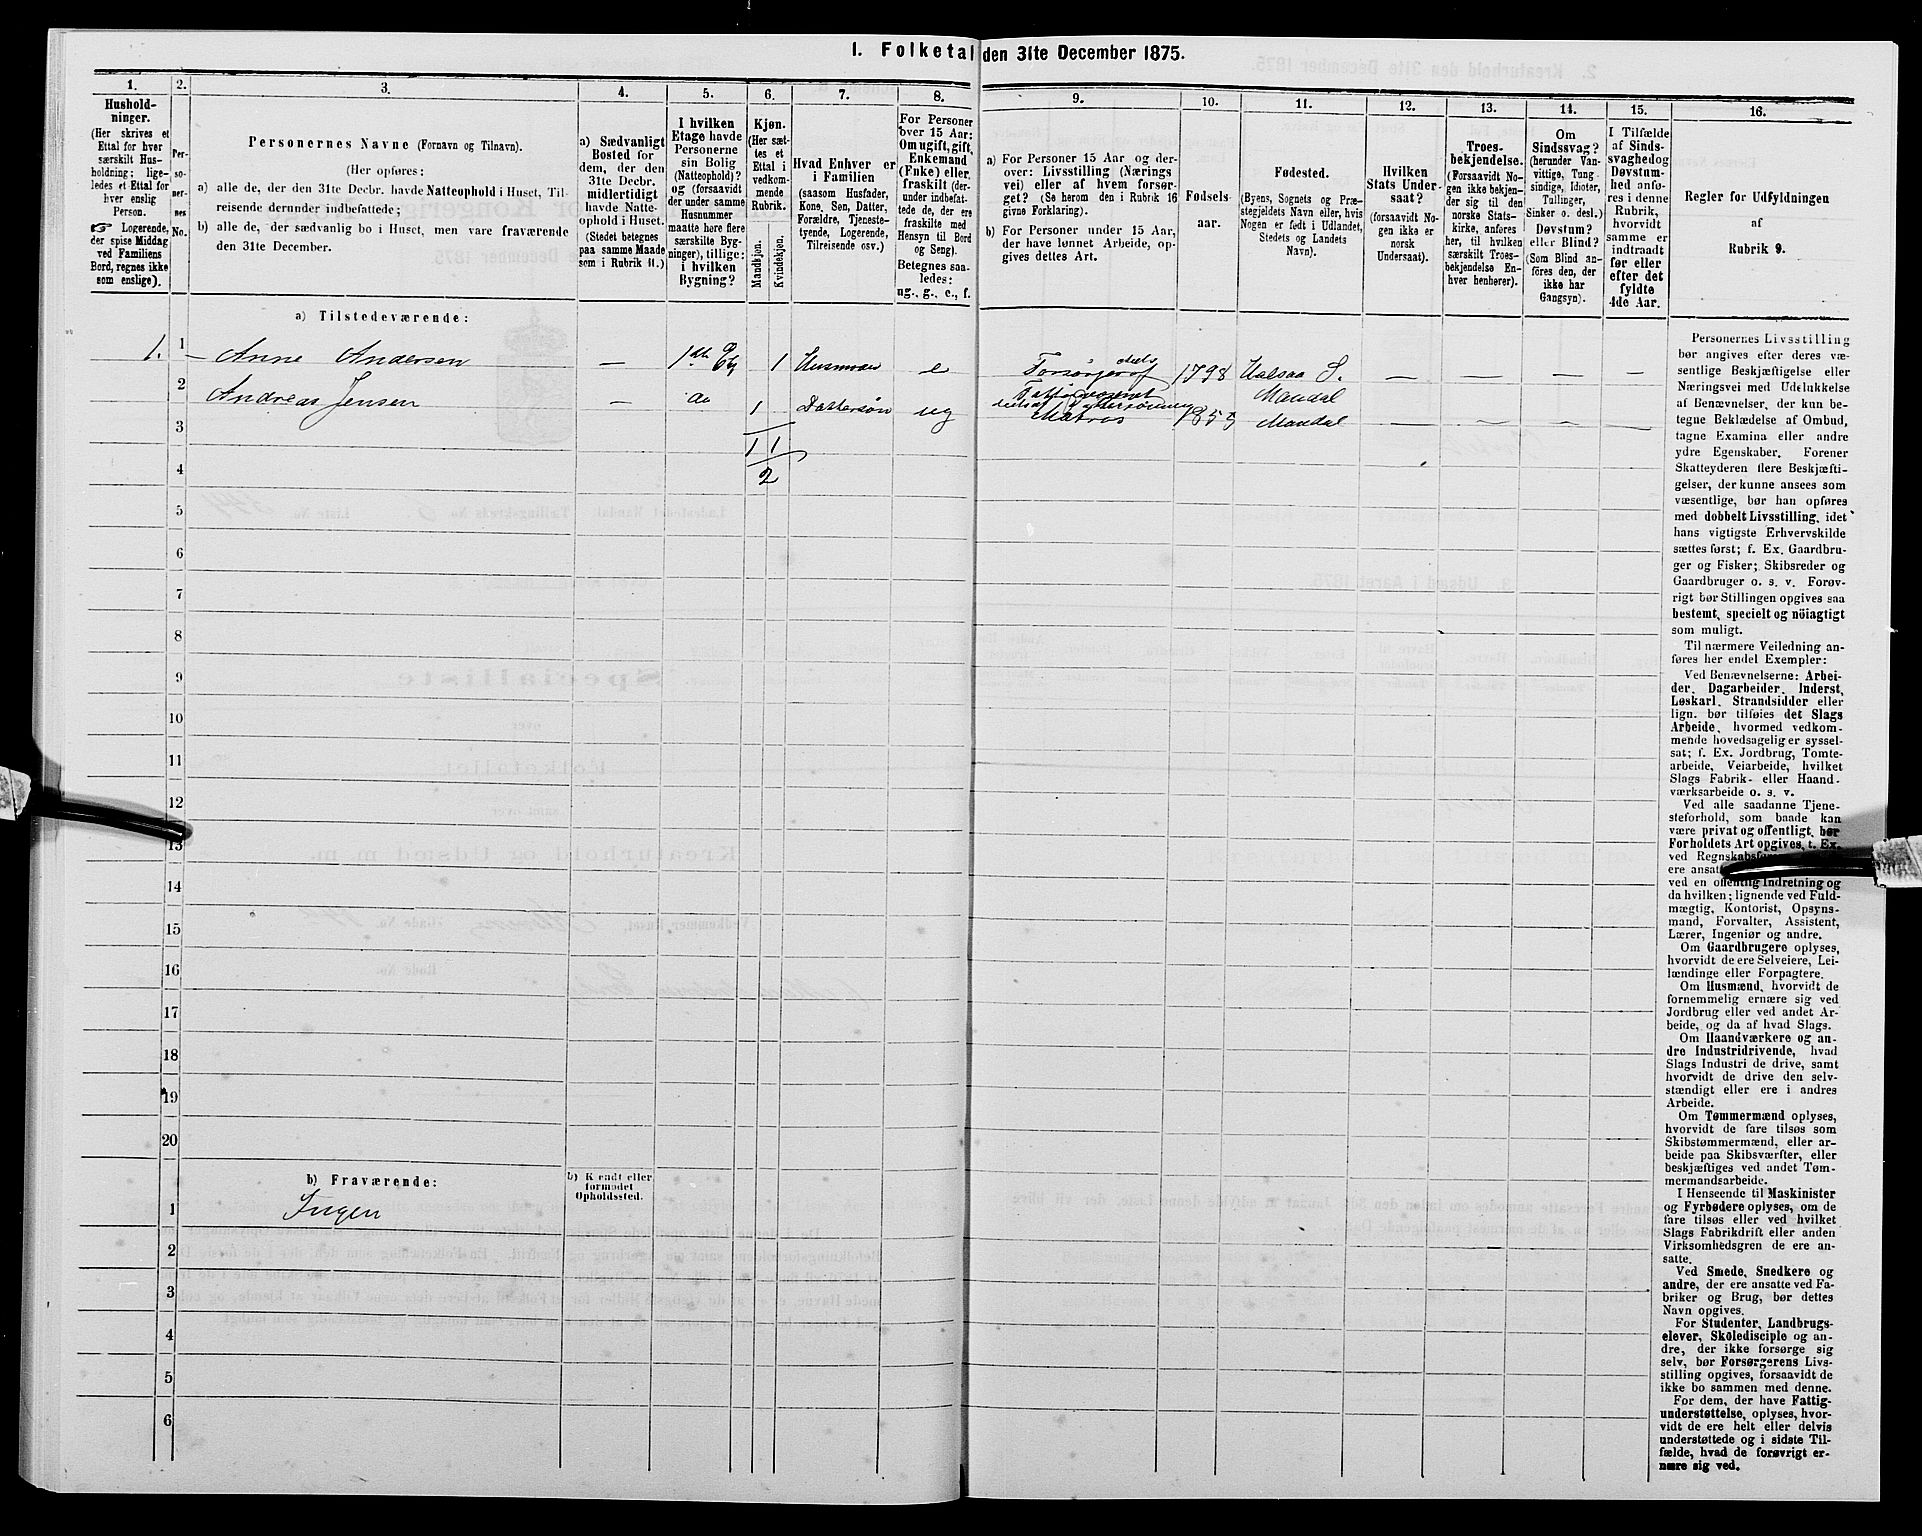 1. Folketal den 31te December 1875.
1.
Hushold-
ninger.
(Her skrives et
Ettal for hver
særskilt Hus-
holdning; lige-
ledes et Ettal for
hver enslig
Person.
Logerende,
der spise Middag
ved Familiens
Bord, regnes ikke
som enslige).
2.
Per-
so-
ner-
nes
No.
3.
Personernes Navne (Fornavn og Tilnavn).
(Her opføres:
a) alle de, der den 31te Decbr. havde Natteophold i Huset, Til-
reisende derunder indbefattede;
b) alle de, der sædvanlig bo i Huset, men vare fraværende
den 31te December.
4.
a) Sædvanligt
Bosted for
dem, der den
31te Decbr.
midlertidigt
havde Natte-
ophold i Huset.
(Stedet betegnes
paa samme Maade
som i Rubrik 11.)
5.
I hvilken
Etage havde
Personerne
sin Bolig
(Natteophold)?
og (forsaavidt
der under samme
Husnummer
maatte høre flere
særskilte Byg-
ninger), tillige:
i hvilken
Bygning?
6.
Kjøn.
(Her sæt-
tes et
Ettal i
vedkom-
mende
Rubrik.
Mandkjøn.
Kvindekjøn.
7.
Hvad Enhver er
i Familien
(saasom Husfader,
Kone, Søn, Datter,
Forældre, Tjeneste-
tyende, Logerende,
Tilreisende osv.)
8.
For Personer
over 15 Aar:
Om ugift, gift,
Enkemand
(Enke) eller
fraskilt (der-
under indbefat-
tede de, der ere
fraskilte med
Hensyn til Bord
og Seng).
Betegnes saa-
ledes:
ug., g., e., f.
9.
a) For Personer 15 Aar og der-
over: Livsstilling (Nærings
vei) eller af hvem forsør-
get? (Se herom den i Rubrik 16
givne Forklaring).
b) For Personer under 15 Aar,
der have lønnet Arbeide, op-
gives dettes Art.
10.
Fødsels-
aar.
11.
Fødested.
(Byens, Sognets og Præ-
stegjeldets Navn eller, hvis
Nogen er født i Udlandet,
Stedets og Landets
Navn).
12.
Hvilken
Stats Under-
saat?
(forsaavidt No-
gen ikke er
norsk
Undersaat).
13.
Troes-
bekjendelse.
(Forsaavidt No-
gen ikke bekjen-
der sig til den
norske Stats-
kirke, anføres
her, til hvilken
særskilt Troes-
bekjendelse En-
hver henhører).
14.
Om
Sindssvag?
(herunder Van-
vittige, Tung-
sindige, Idioter,
Tullinger,
Sinker o. desl.)
Døvstum?
eller Blind?
(Som Blind an-
føres den, der
ikke har
Gangsyn).
15.
I Tilfælde
af Sinds-
svaghed og
Døvstum-
hed anfø-
res i denne
Rubrik,
hvorvidt
samme er
indtraadt
før eller
efter det
fyldte
4de Aar.
16.
Regler for Udfyldningen
af
Rubrik 9.
a) Tilstedeværende:
1. 1 Anne Andersen — 1ste Etg 1 Husmoer e Forsørges af deels Fattigvæsenet deels af Dattersønnen 1798 Halsaa S. Mandal — — — —
2 Andreas Jensen — do 1 Dattersøn ug Matros 1855 Mandal — — — —
3
1 1
4
2
5
6
7
8
9
10
11
12
13
14
15
16
17
18
19
20
b) Fraværende:
b) Kjendt eller
formodet
Opholdssted.
1 Ingen
2
3
4
5
6
Personernes Livsstilling
bør angives efter deres væ-
sentlige Beskjæftigelse eller
Næringsvei med Udelukkelse
af Benævnelser, der kun be-
tegne Beklædelse af Ombud,
tagne Examina eller andre
ydre Egenskaber. Forener
Skatteyderen flere Beskjæfti-
gelser, der kunne ansees som
væsentlige, bør han opføres
med dobbelt Livsstilling, idet
hans vigtigste Erhvervskilde
sættes først; f. Ex. Gaardbru-
ger og Fisker; Skibsreder og
Gaardbruger o. s. v. Forøv-
rigt bør Stillingen opgives saa
bestemt, specielt og nöiagtigt
som muligt.
Til nærmere Veiledning an-
føres her endel Exempler:
Ved Benævnelserne: Arbei-
der, Dagarbeider, Inderst,
Løskarl, Strandsidder eller
lign. bør tilføies det Slags
Arbeide, hvormed vedkom-
mende hovedsagelig er syssel-
sat; f. Ex. Jordbrug, Tomte-
arbeide, Veiarbeide, hvilket
Slags Fabrik- eller Haand-
værksarbeide o. s. v.
Ved alle saadanne Tjene-
steforhold, som baade kan
være privat og offentligt, bør
Forholdets Art opgives, t. Ex.
ved Regnskabsfø
ere ansat
ved en offentlig Indretning og
da hvilken; lignende ved Fuld-
mægtig, Kontorist, Opsyns-
mand, Forvalter, Assistent,
Lærer, Ingeniør og andre.
Om Gaardbrugere oplyses,
hvorvidt de ere Selveiere, Lei-
lændinge eller Forpagtere.
Om Husmænd, hvorvidt de
fornemmelig ernære sig ved
Jordbrug eller ved andet Ar-
beide, og da af hvad Slags.
Om Haandværkere og an-
dre Industridrivende, hvad
Slags Industri de drive, samt
hvorvidt de drive den selv-
stændigt eller ere i andres
Arbeide.
Om Tømmermænd oplyses,
hvorvidt de fare tilsøs som
Skibstømmermænd, eller ar-
beide paa Skibsværfter, eller
beskjæftiges ved andet Tøm-
mermandsarbeide.
I Henseende til Maskinister
og Fyrbødere oplyses, om de
fare tilsøs eller ved hvilket
Slags Fabrikdrift eller anden
Virksomhedsgren de ere an-
satte.
Ved Smede, Snedkere og
andre, der ere ansatte ved Fa-
briker og Brug, bør dettes
Navn opgives.
For Studenter, Landbrugs-
elever, Skoledisciple og an-
dre, der ikke forsørge sig
selv, bør Forsørgerens Livs-
stilling opgives, forsaavidt de
ikke bo sammen med denne.
For dem, der have Fattig-
understøttelse, oplyses, hvor-
vidt de ere helt eller delvis
understøttede og i sidste Til-
fælde, hvad de forøvrigt er-
nære sig ved.